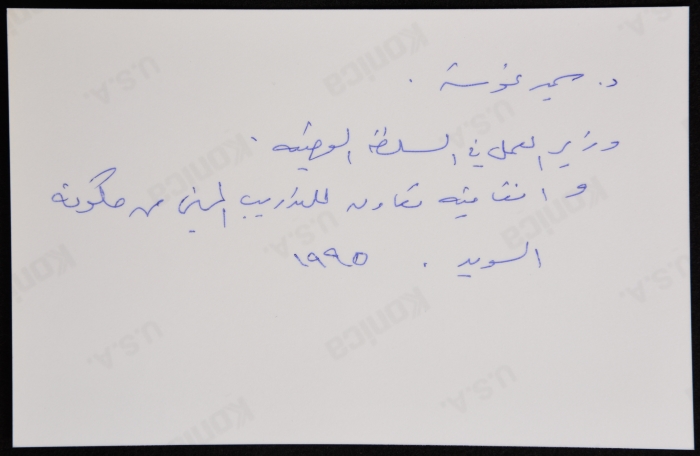 د. سمير غوشة .
وزير العمل في السلطة الوطنيه .
و اتفاقية تعاون للتدريب المهني من حكومة
السويد . ١٩٩٥
Konica
U.S.A.